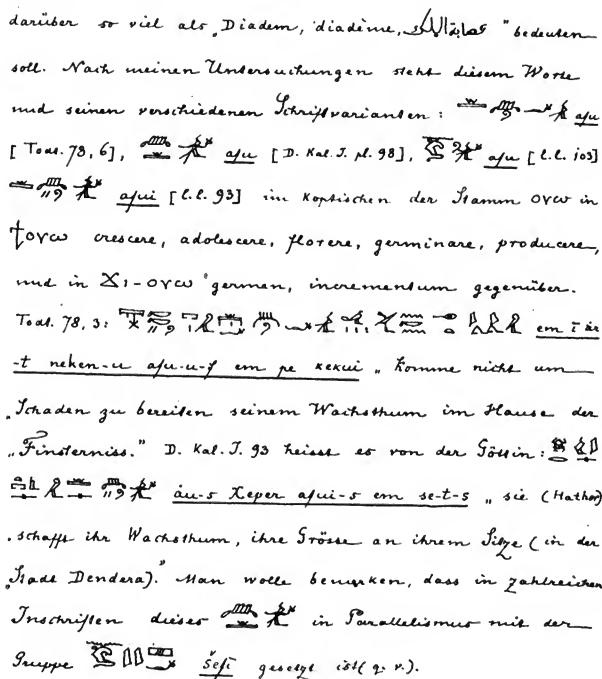 darüber so viel als „Diadem, diadème, عصابة الملك" bedeuten
soll. Nach meinen Untersuchungen steht diesem Worte
und seinen verschiedenen Schriftvarianten: afu
[Todt. 78, 6], afu [D. Kal. J. pl. 98], afu [l.l. 103]
afui [l.l. 93] im koptischen der Stamm ⲟⲩⲱ in
ϯⲟⲩⲱ crescere, adolescere, florere, germinare, producere,
und in ϫⲓ-ⲟⲩⲱ germen, incrementum gegenüber.
Todt. 78, 3: em i är
-t neken-u afu-u-f em pe kekui „komme nicht um
„Schaden zu bereiten seinem Wachsthum im Hause der
„Finsterniss." D. Kal. J. 93 heisst es von der Göttin:
äu-s χeper afui-s em se-t-s „sie (Hathor)
„schafft ihr Wachsthum, ihre Grösse an ihrem Sitze (in der
„Stadt Dendera)." Man wolle bemerken, dass in zahlreichen
Inschriften dieses in Parallelismus mit der
Gruppe šefi gesetzt ist (q. v.).